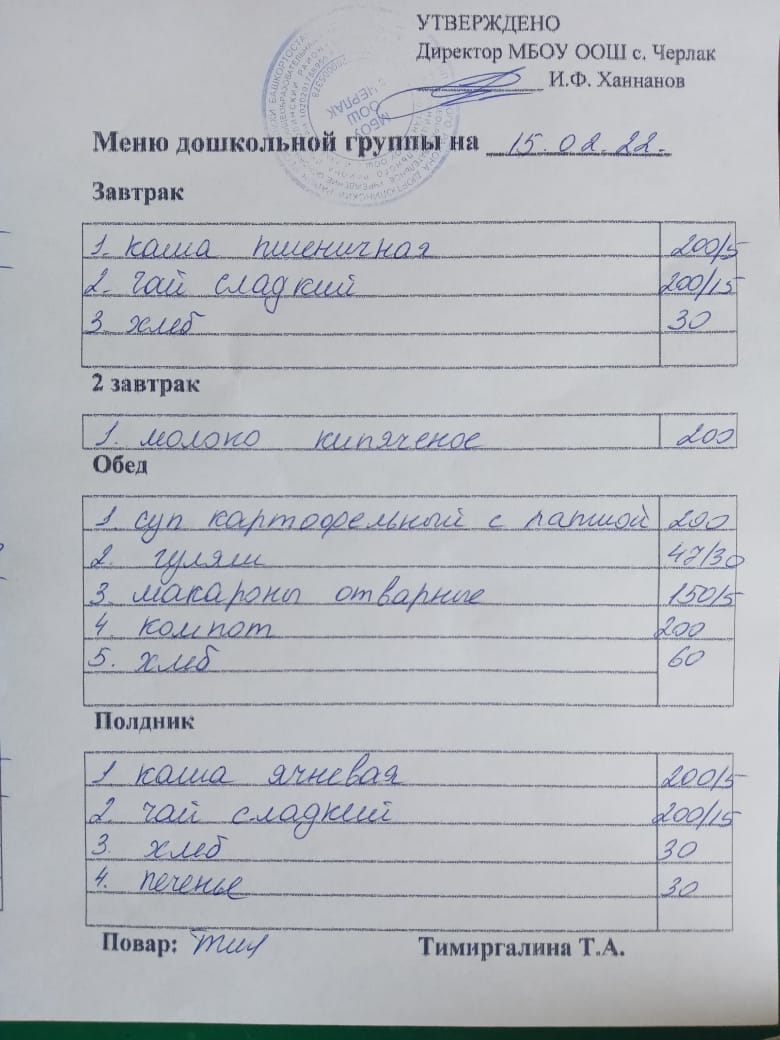 УТВЕРЖДЕНО
Директор МБОУ ООШ с. Черлак
И.Ф. Ханнанов
МБОУ
ООШ
с. ЧЕРЛАК
Меню дошкольной группы на 15.02.22.
Завтрак
1. каша пшеничная 200/5
2. чай сладкий 200/15
3. хлеб 30
2 завтрак
1. молоко кипяченое 200
Обед
1. суп картофельный с лапшой 200
2. гуляш 47/30
3. макароны отварные 150/5
4. компот 200
5. хлеб 60
Полдник
1 каша ячневая 200/5
2. чай сладкий 200/15
3. хлеб 30
4. печенье 30
Повар: Тимиргалина Т.А.